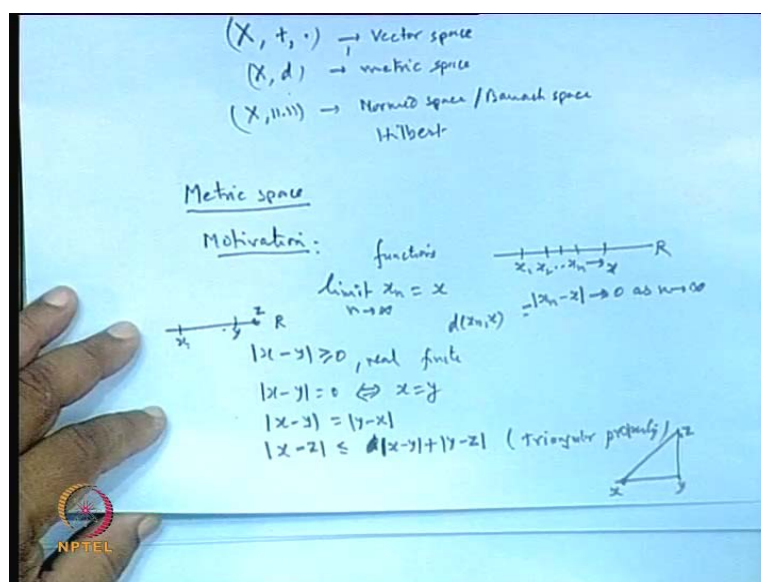 (X, +, ·) → Vector space
(X, d) → metric space
(X, ||.||) → Normed space / Banach space
Hilbert
Metric space
Motivation: functions
x₁ x₂ .. xₙ → x R
limit xₙ = x
n→∞
d(xₙ, x) = |xₙ - x| → 0 as n→∞
x y z R
|x - y| ≥ 0, real finite
|x - y| = 0 ⇔ x = y
|x - y| = |y - x|
|x - z| ≤ |x - y| + |y - z| (triangular property)
x y z
NPTEL